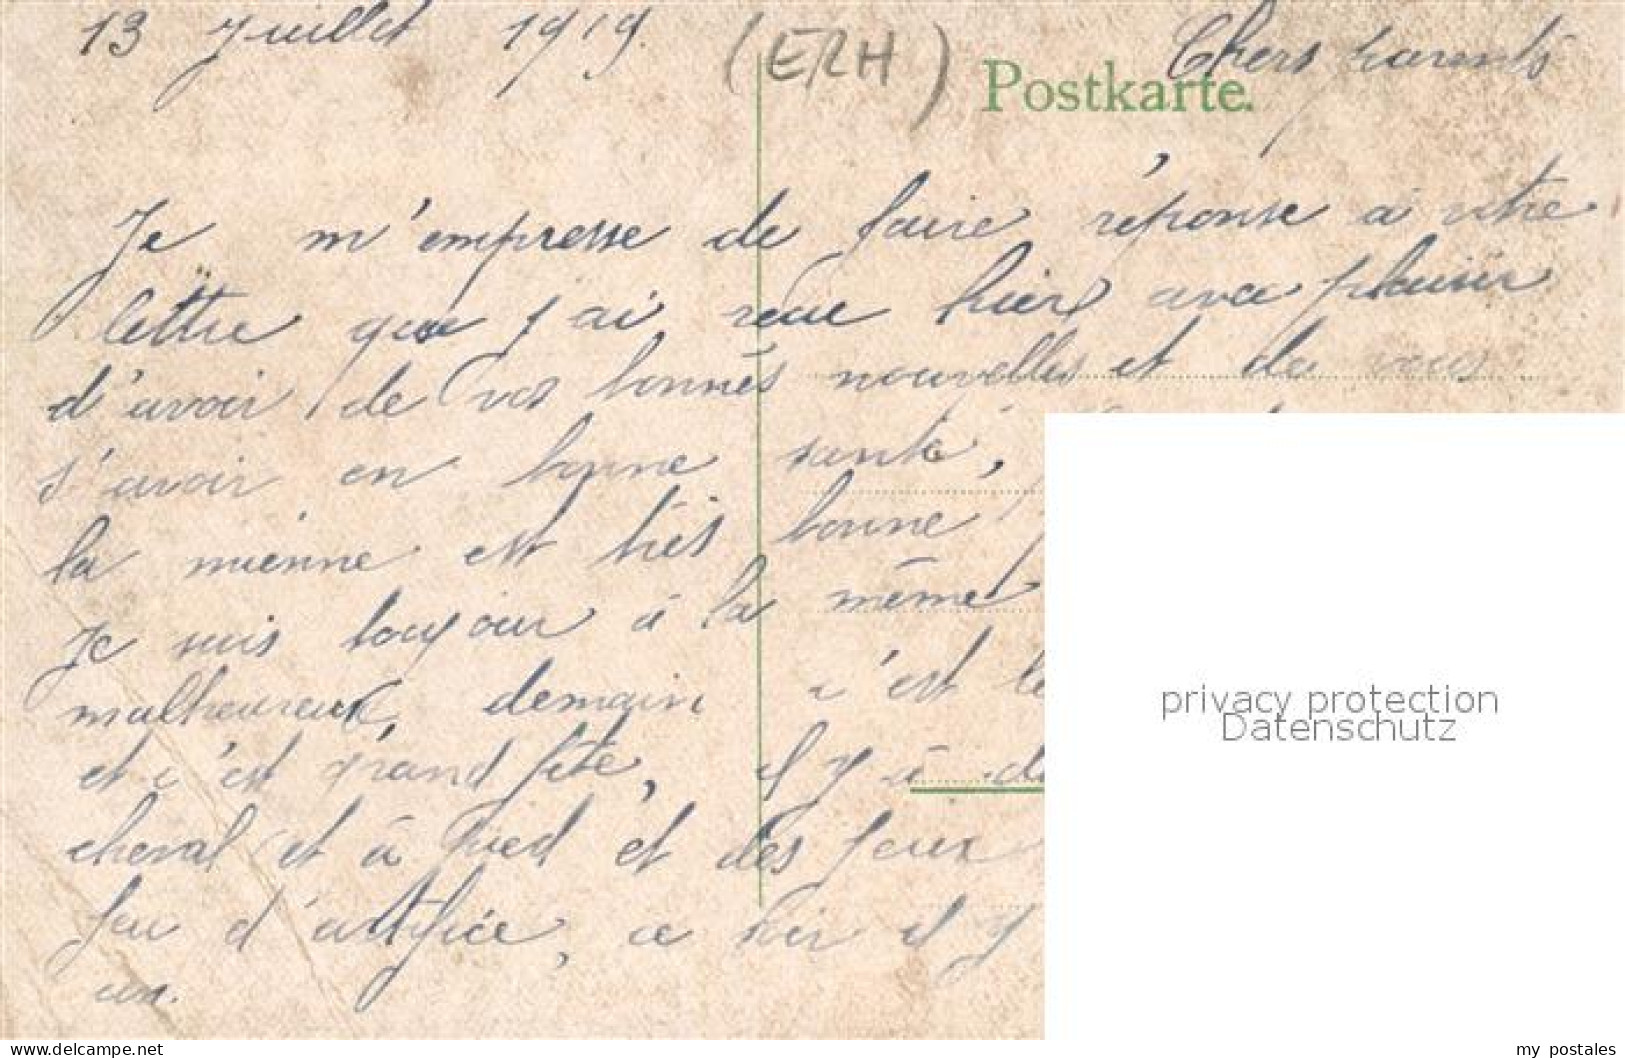 13 Juillet 1919. (ERH) Chers parents
Postkarte.
Je m'empresse de faire réponse a votre
lettre que j'ai recue hier avec plaisir
d'avoir de vos bonnes nouvelles et de vous
s'avoir en bonne santé,
la mienne est très bonne
Je suis toujour à la même
malheureux, demain c'est le
et c'est grand fête, il y à de
cheval et à pied et des jeux
feu d'artifice, ce soir il y
un.
privacy protection
Datenschutz
www.delcampe.net
my_postales